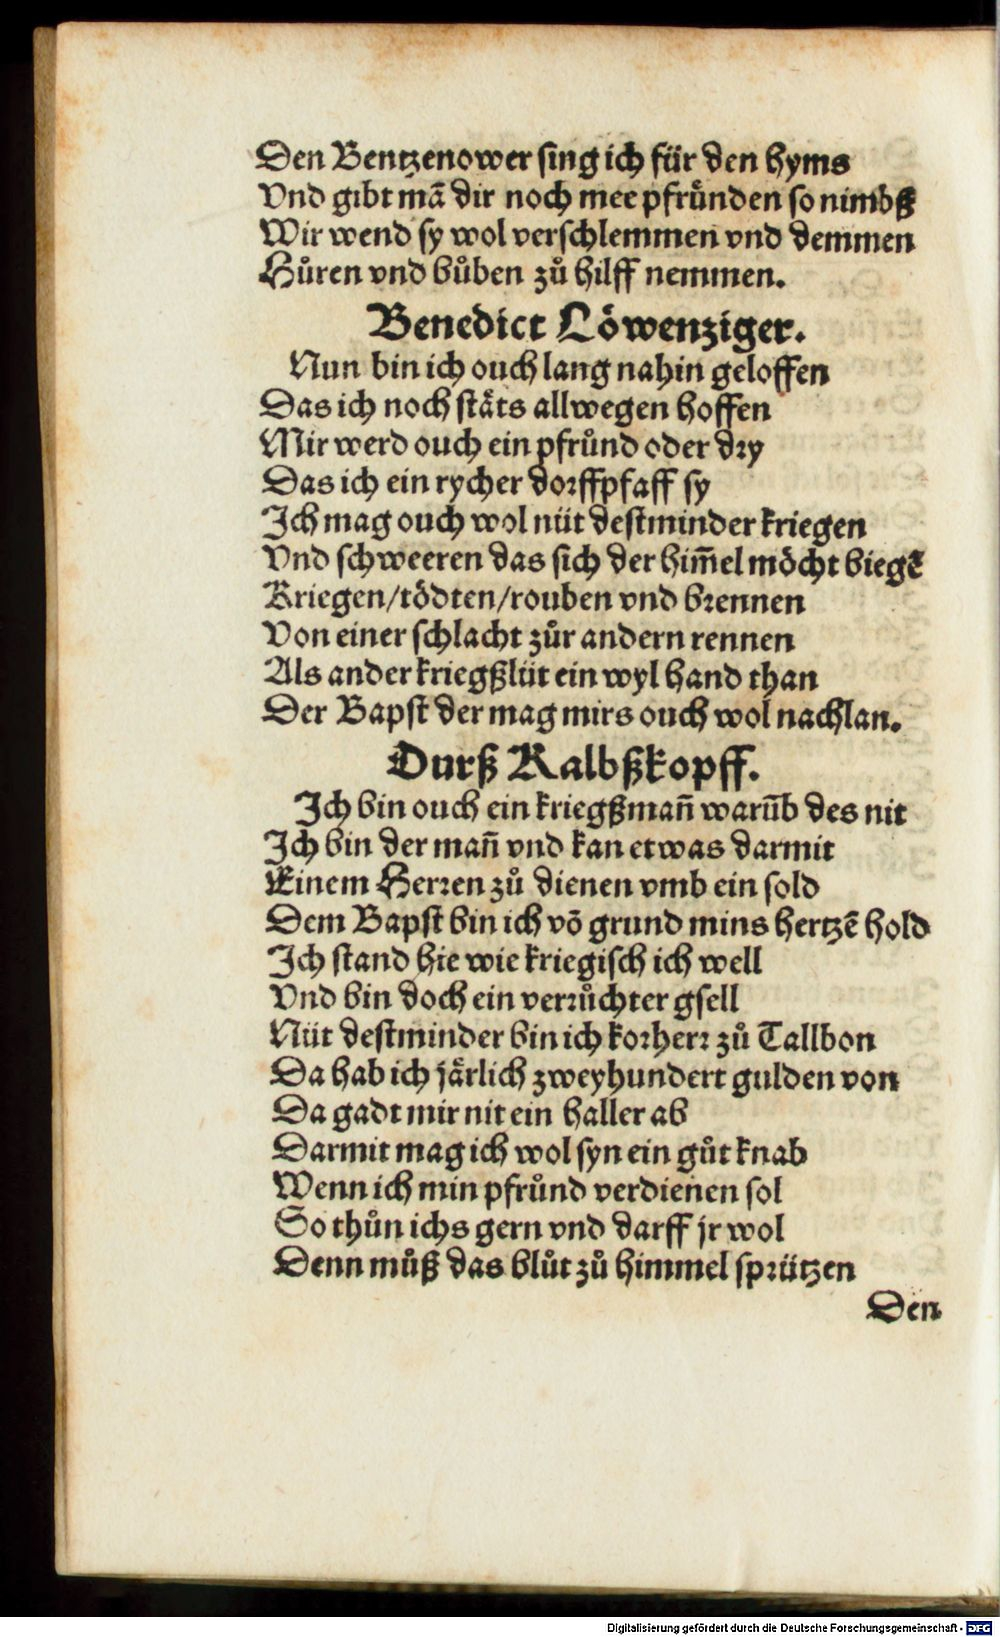 Den Bentzenower sing ich für den hyms
Vnd gibt mā dir noch mee pfrůnden so nimbß
Wir wend sy wol verschlemmen vnd demmen
Hůren vnd bůben zů hilff nemmen.
Benedict Löwenziger.
Nun bin ich ouch lang nahin geloffen
Das ich noch stäts allwegen hoffen
Mir werd ouch ein pfrůnd oder dry
Das ich ein rycher dorffpfaff sy
Ich mag ouch wol nüt destminder kriegen
Vnd schweeren das sich der him̄el möcht biegē
Kriegen/tödten/rouben vnd brennen
Von einer schlacht zůr andern rennen
Als ander kriegßlüt ein wyl hand than
Der Bapst der mag mirs ouch wol nachlan.
Durß Kalbßkopff.
Ich bin ouch ein kriegßman̄ warūb des nit
Ich bin der man̄ vnd kan etwas darmit
Einem Herren zů dienen vmb ein sold
Dem Bapst bin ich vō grund mins hertzē hold
Ich stand hie wie kriegisch ich well
Vnd bin doch ein verrůchter gsell
Nüt destminder bin ich korherr zů Tallbon
Da hab ich järlich zweyhundert gulden von
Da gadt mir nit ein haller ab
Darmit mag ich wol syn ein gůt knab
Wenn ich min pfrůnd verdienen sol
So thůn ichs gern vnd darff jr wol
Denn můß das blůt zů himmel sprützen
Den
Digitalisierung gefördert durch die Deutsche Forschungsgemeinschaft - DFG